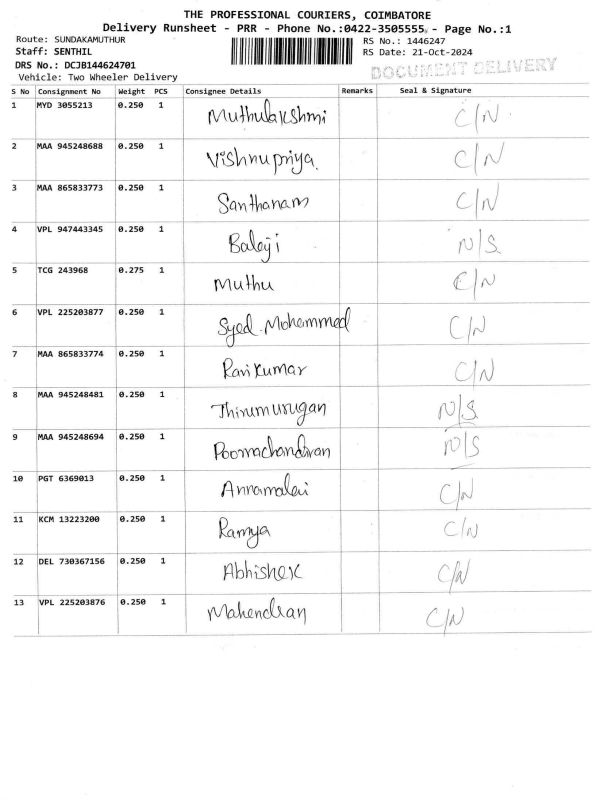 THE PROFESSIONAL COURIERS, COIMBATORE
Delivery Runsheet - PRR - Phone No.:0422-3505555, - Page No.:1
Route: SUNDAKAMUTHUR RS No.: 1446247
Staff: SENTHIL RS Date: 21-Oct-2024
DRS No.: DCJB144624701 DOCUMENT DELIVERY
Vehicle: Two Wheeler Delivery
S No Consignment No Weight PCS Consignee Details Remarks Seal & Signature
1 MYD 3055213 0.250 1 Muthulakshmi C/N
2 MAA 945248688 0.250 1 Vishnupriya. C/N
3 MAA 865833773 0.250 1 Santhanam C/N
4 VPL 947443345 0.250 1 Balaji N/S
5 TCG 243968 0.275 1 Muthu C/N
6 VPL 225203877 0.250 1 Syed.Mohammed C/N
7 MAA 865833774 0.250 1 Ravikumar C/N
8 MAA 945248481 0.250 1 Thirumurugan N/S
9 MAA 945248694 0.250 1 Poornachandran N/S
10 PGT 6369013 0.250 1 Annamalai C/N
11 KCM 13223200 0.250 1 Ramya C/N
12 DEL 730367156 0.250 1 Abhishek C/N
13 VPL 225203876 0.250 1 Mahendran C/N